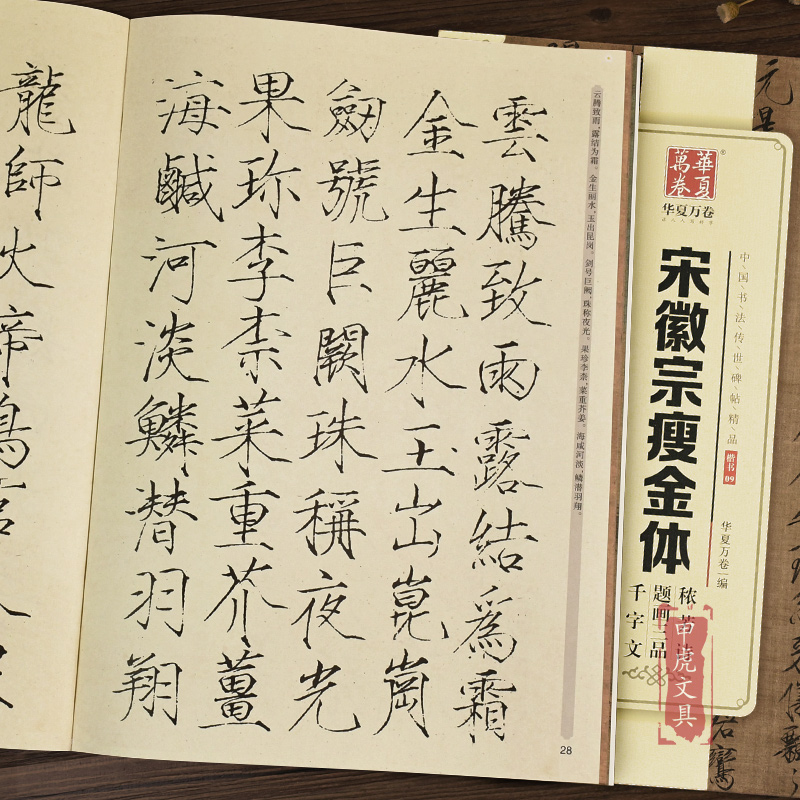 雲騰致雨露結爲霜
金生麗水玉出崑崗
劒號巨闕珠稱夜光
果珍李柰菜重芥薑
海鹹河淡鱗替羽翔
龍師火帝鳥官人皇
云腾致雨，露结为霜。金生丽水，玉出昆冈。剑号巨阙，珠称夜光。果珍李柰，菜重芥姜。海咸河淡，鳞潜羽翔。
28
華夏萬卷
华夏万卷
中国书法传世碑帖精品
楷书
09
宋徽宗瘦金体
华夏万卷 编
题画三品
千字文
甲虎文具